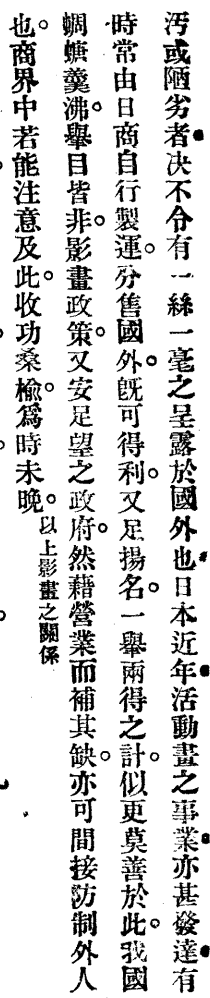 汚或陋劣者决不令有一絲一毫之呈露於國外也日本近年活動畫之事業亦甚發達有
時常由日商自行製運。分售國外。旣可得利。又足揚名。一舉兩得之計。似更莫善於此。我國
蜩螗羹沸。舉目皆非。影畫政策。又安足望之政府。然藉營業而補其缺。亦可間接防制外人
也。商界中若能注意及此。收功桑榆。爲時未晚。以上影畫之關係